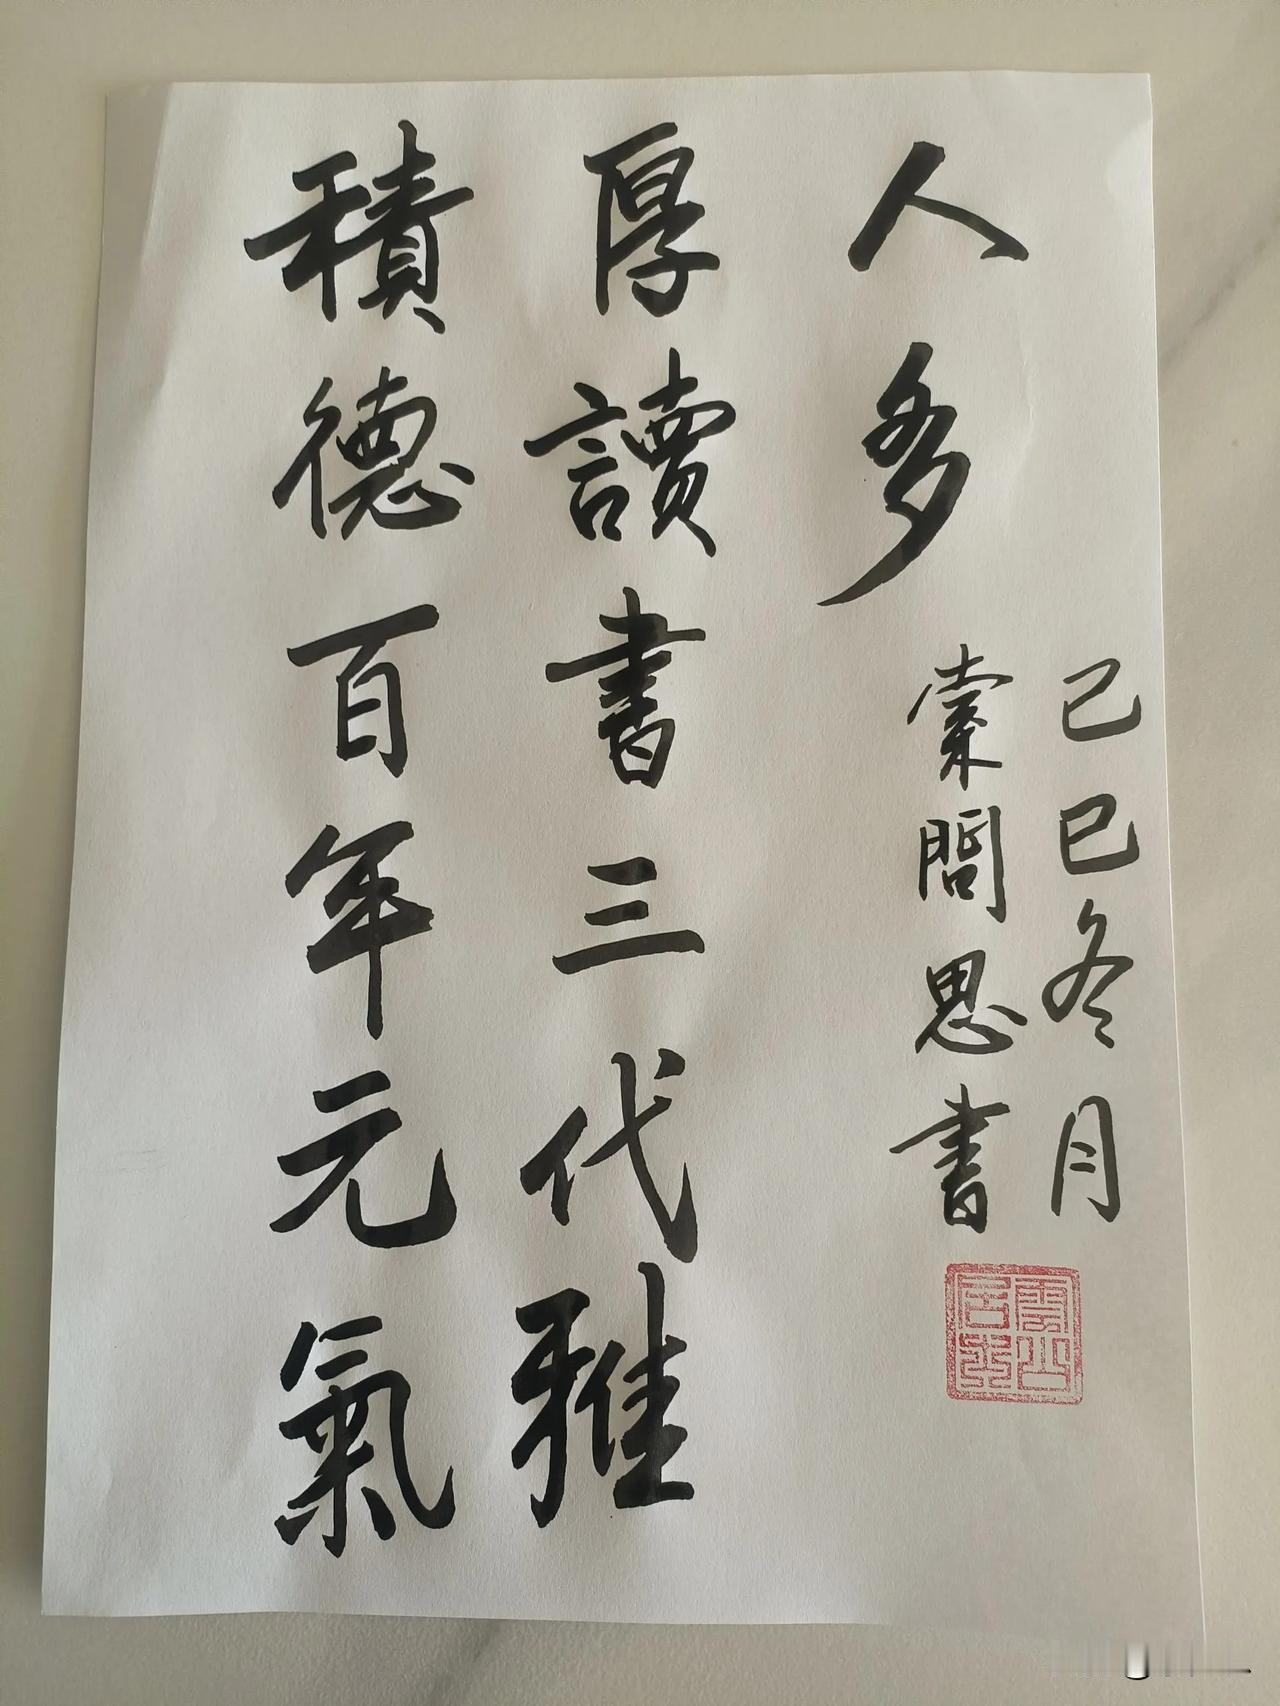 積德百年元氣
厚讀書三代雅
人多
己巳冬月
索問思書